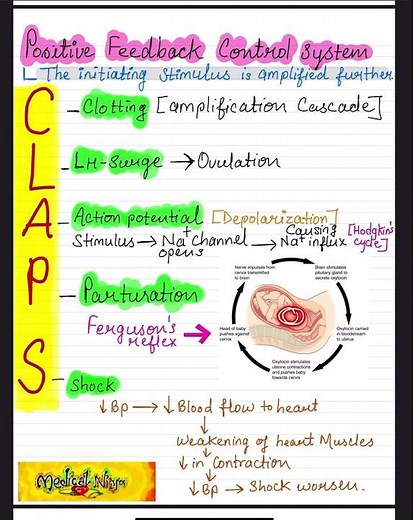 Positive Feedback Control System
The initiating stimulus is amplified further.
C - Clotting [amplification Cascade]
L - LH-Surge → Ovulation
A - Action potential [Depolarization]
Stimulus → Na+ channel opens → Causing Na+ influx [Hodgkin's cycle]
P - Parturation
Ferguson's reflex →
Nerve impulses from cervix transmitted to brain
Brain stimulates pituitary gland to secrete oxytocin
Oxytocin carried in bloodstream to uterus
Oxytocin stimulates uterine contractions and pushes baby towards cervix
Head of baby pushes against cervix
S - Shock
↓ Bp → ↓ Blood flow to heart
↓
weakening of heart Muscles
↓ in Contraction
↓ Bp → Shock worsen.
Medical Ninja